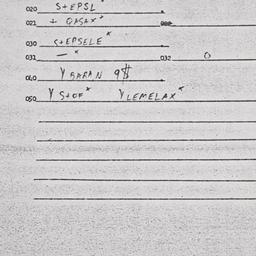 020 S+EPSL
021 + QASAX+
030 S+EPSELEx
031 — x 032 0
040 Y BARAN 9$
050 Y S+OFx Y LEMELAXx